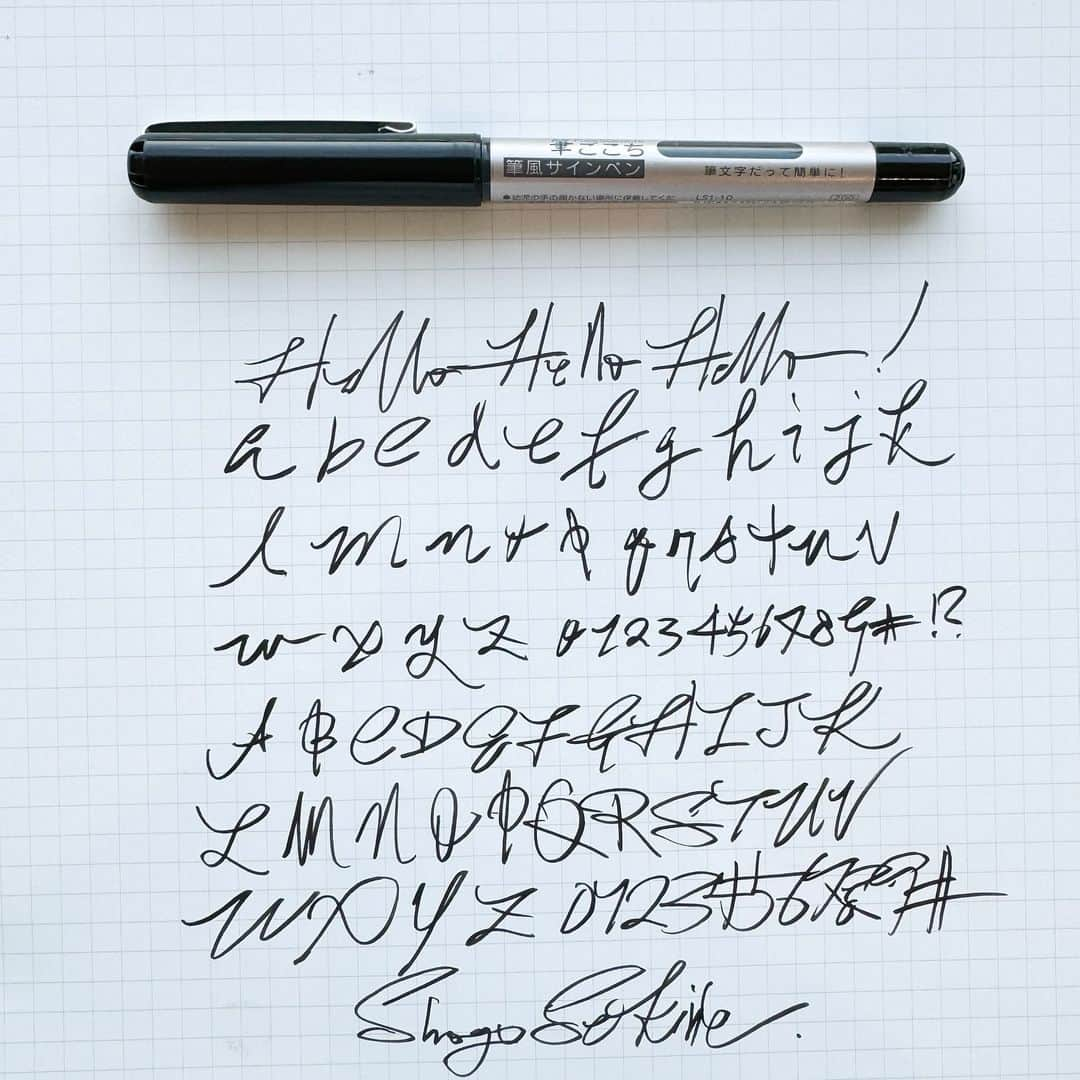 筆ごこち
筆風サインペン
筆文字だって簡単に!
●幼児の手の届かない場所に保管してくだ
LS1-10
Hello Hello Hello!
a b c d e f g h i j k
l m n o p q r s t u n v
w x y z 0 1 2 3 4 5 6 7 8 9 # !?
A B C D E F G H I J K
L M N O P Q R S T U V
W X Y Z 0 1 2 3 4 5 6 7 8 9 #
Shogo Sekine.